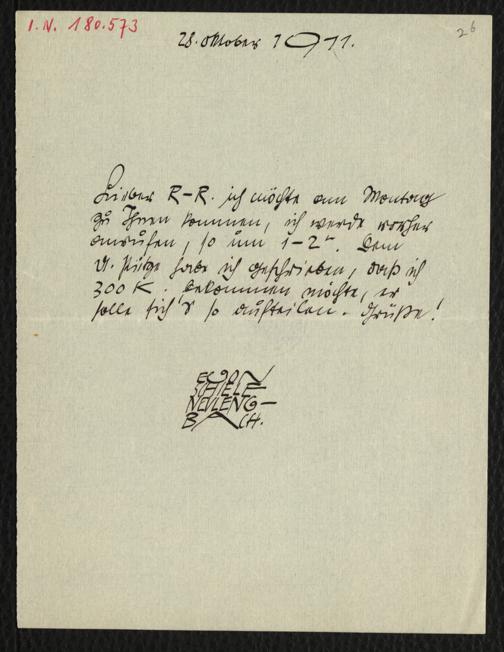 I.N. 180.573
26
28. Oktober 1911.
Lieber R-R. ich möchte am Montag
zu Ihnen kommen, ich werde vorher
anrufen, so um 1-2ʰ. Dem
habe ich geschrieben, daß ich
300 K. bekommen möchte, er
solle sich's so aufteilen. Grüße!
EGON
SCHIELE
NEULENG–
BACH.